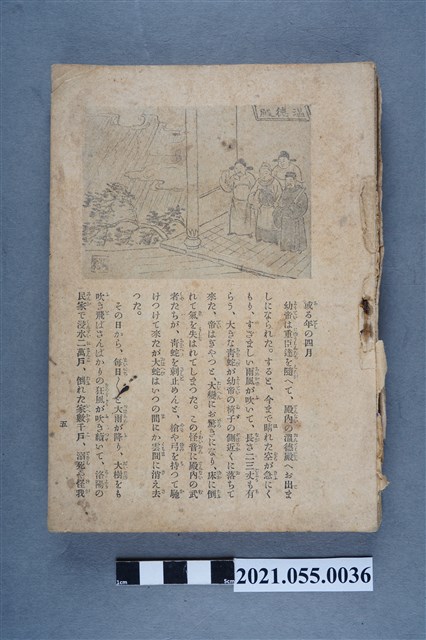 溫德殿
或る年の四月
幼帝は重臣達を隨へて、殿内の溫德殿へお出ま
しになられた。すると、今まで晴れた空が急にく
もり、すさまじい雨風が吹いて、長さ二三丈も有
らう、大きな靑蛇が幼帝の椅子の側近くに落ちて
來た。帝はぎやつと大變にお驚きになり、床に倒
れて氣を失はれてしまつた。この怪音に殿内の武
者たちが、靑蛇を刺止めんと、槍や弓を持つて馳
けつけて來たが大蛇はいつの間にか雲間に消え去
つた。
その日から、每日 と大雨が降り、大樹をも
吹き飛ばさんばかりの狂風が吹き續いて、洛陽の
民家で浸水二萬戶、倒れた家數千戶、溺死 怪我
五
1cm
5cm
2021.055.0036